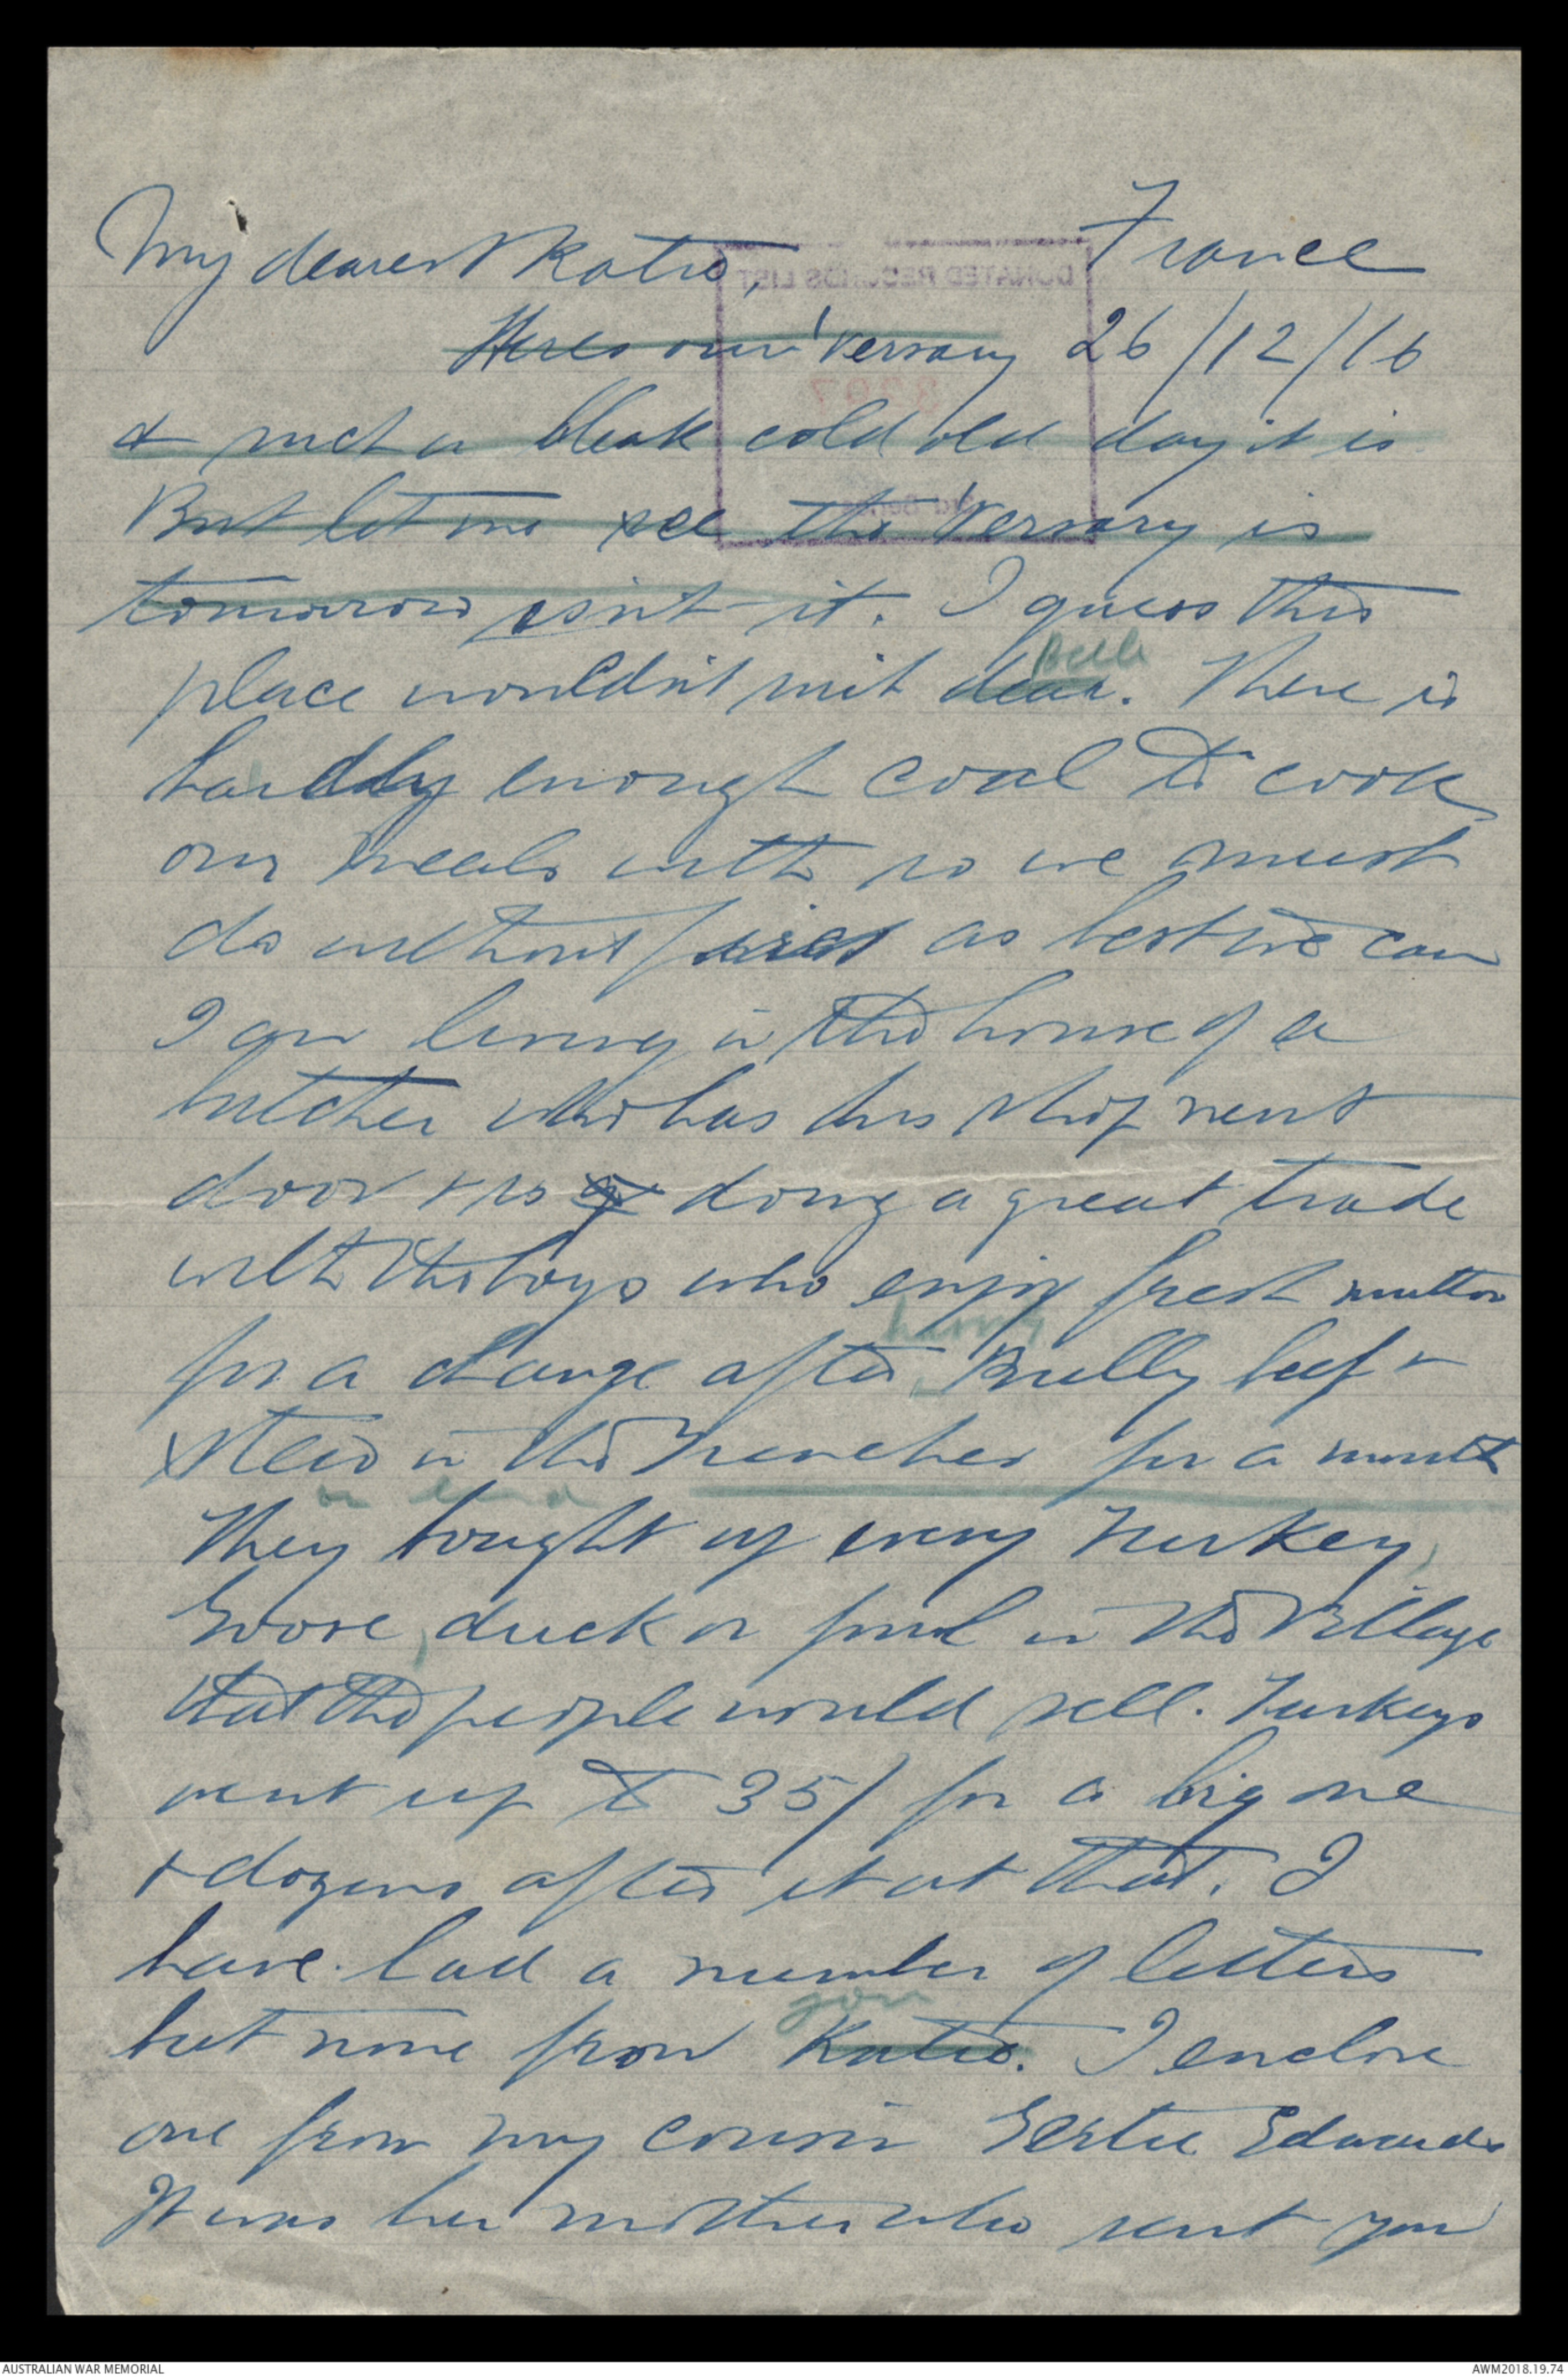 France
My dearest Katie,
Heres our 'Versary 26/12/16
& such a bleak cold old day it is
But let me see the 'Versary is
tomorrow isn't it. I guess this
Belle
place wouldn't suit dear. There is
hardly enough coal to cook
our meals with so we must
do without fires as best we can
I am living in the house of a
butcher who has his shop next
door & is doing a great trade
with the boys who enjoy fresh mutton
having
for a change after Bully beef &
stew in the Trenches for a month
on end
They bought up every Turkey,
Goose, duck or fowl in the Village
that the people would sell. Turkeys
went up to 35/ for a big one
& dozens after it at that. I
have had a number of letters
you
but none from Katie. I enclose
one from my cousin Gertie Edwards
It was her mother who sent you
DONATED RECORDS LIST
8297
AUSTRALIAN WAR MEMORIAL
AWM2018.19.74